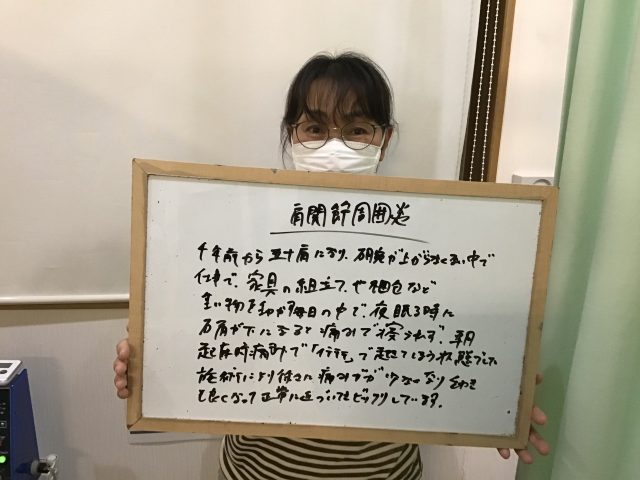 肩関節周囲炎
半年前から五十肩になり、右腕が上がらなくない中で
仕事で、家具の組立てや梱包など
重い物を動かす毎日の中で、夜眠る時に
右肩が下になると痛みで寝られず、朝
起床時痛みで「イテテ」で起きてしまう状態でした
施術により徐々に痛みがなくなり
も良くなって正常に近づいてビックリしてます。